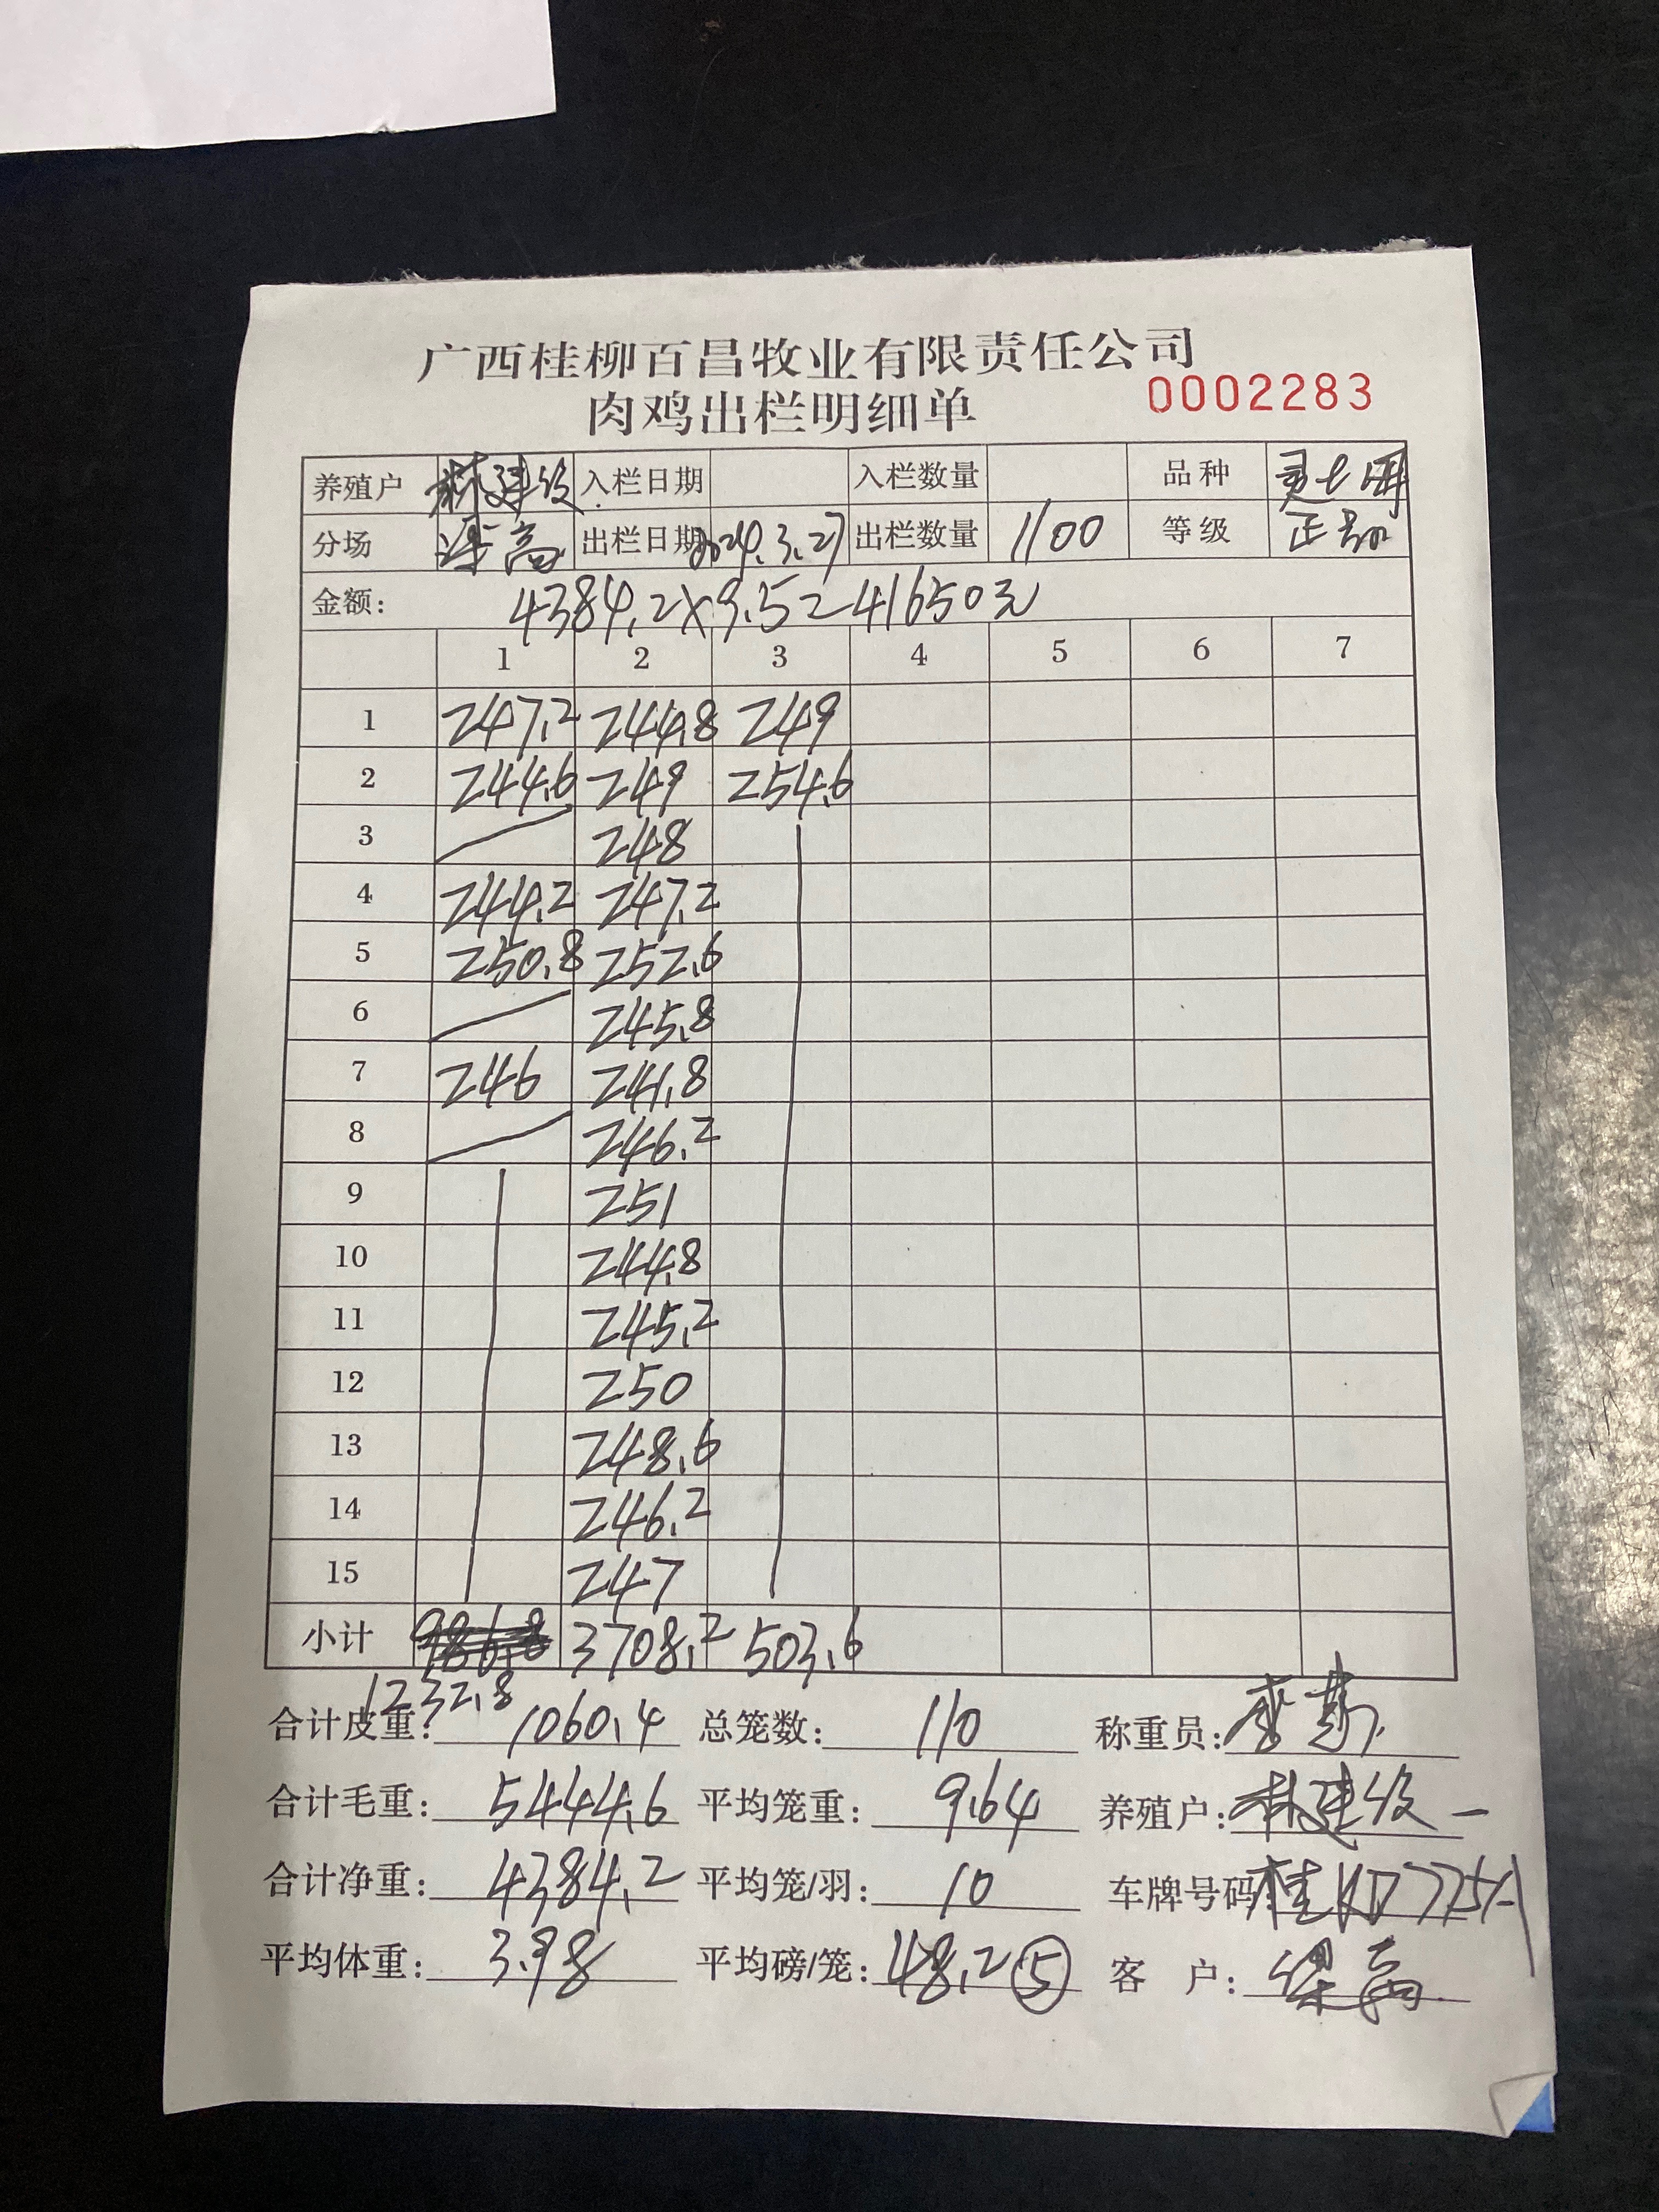 广西桂柳百昌牧业有限责任公司
肉鸡出栏明细单 0002283
养殖户 林建 入栏日期 入栏数量 品种
分场 出栏日期 2024.3.27 出栏数量 1100 等级 正
金额: 4384.2×9.5=41650元
1 2 3 4 5 6 7
1 247.2 244.8 249
2 244.6 249 254.6
3 248
4 244.2 247.2
5 250.8 252.6
6 245.8
7 246 241.8
8 246.2
9 251
10 244.8
11 245.2
12 250
13 248.6
14 246.2
15 247
小计 986.8 3708.2 503.6
1232.8
合计皮重: 1060.4 总笼数: 110 称重员:
合计毛重: 5444.6 平均笼重: 9.64 养殖户: 林建
合计净重: 4384.2 平均笼/羽: 10 车牌号码 桂
平均体重: 3.98 平均磅/笼: 48.2⑤ 客 户: